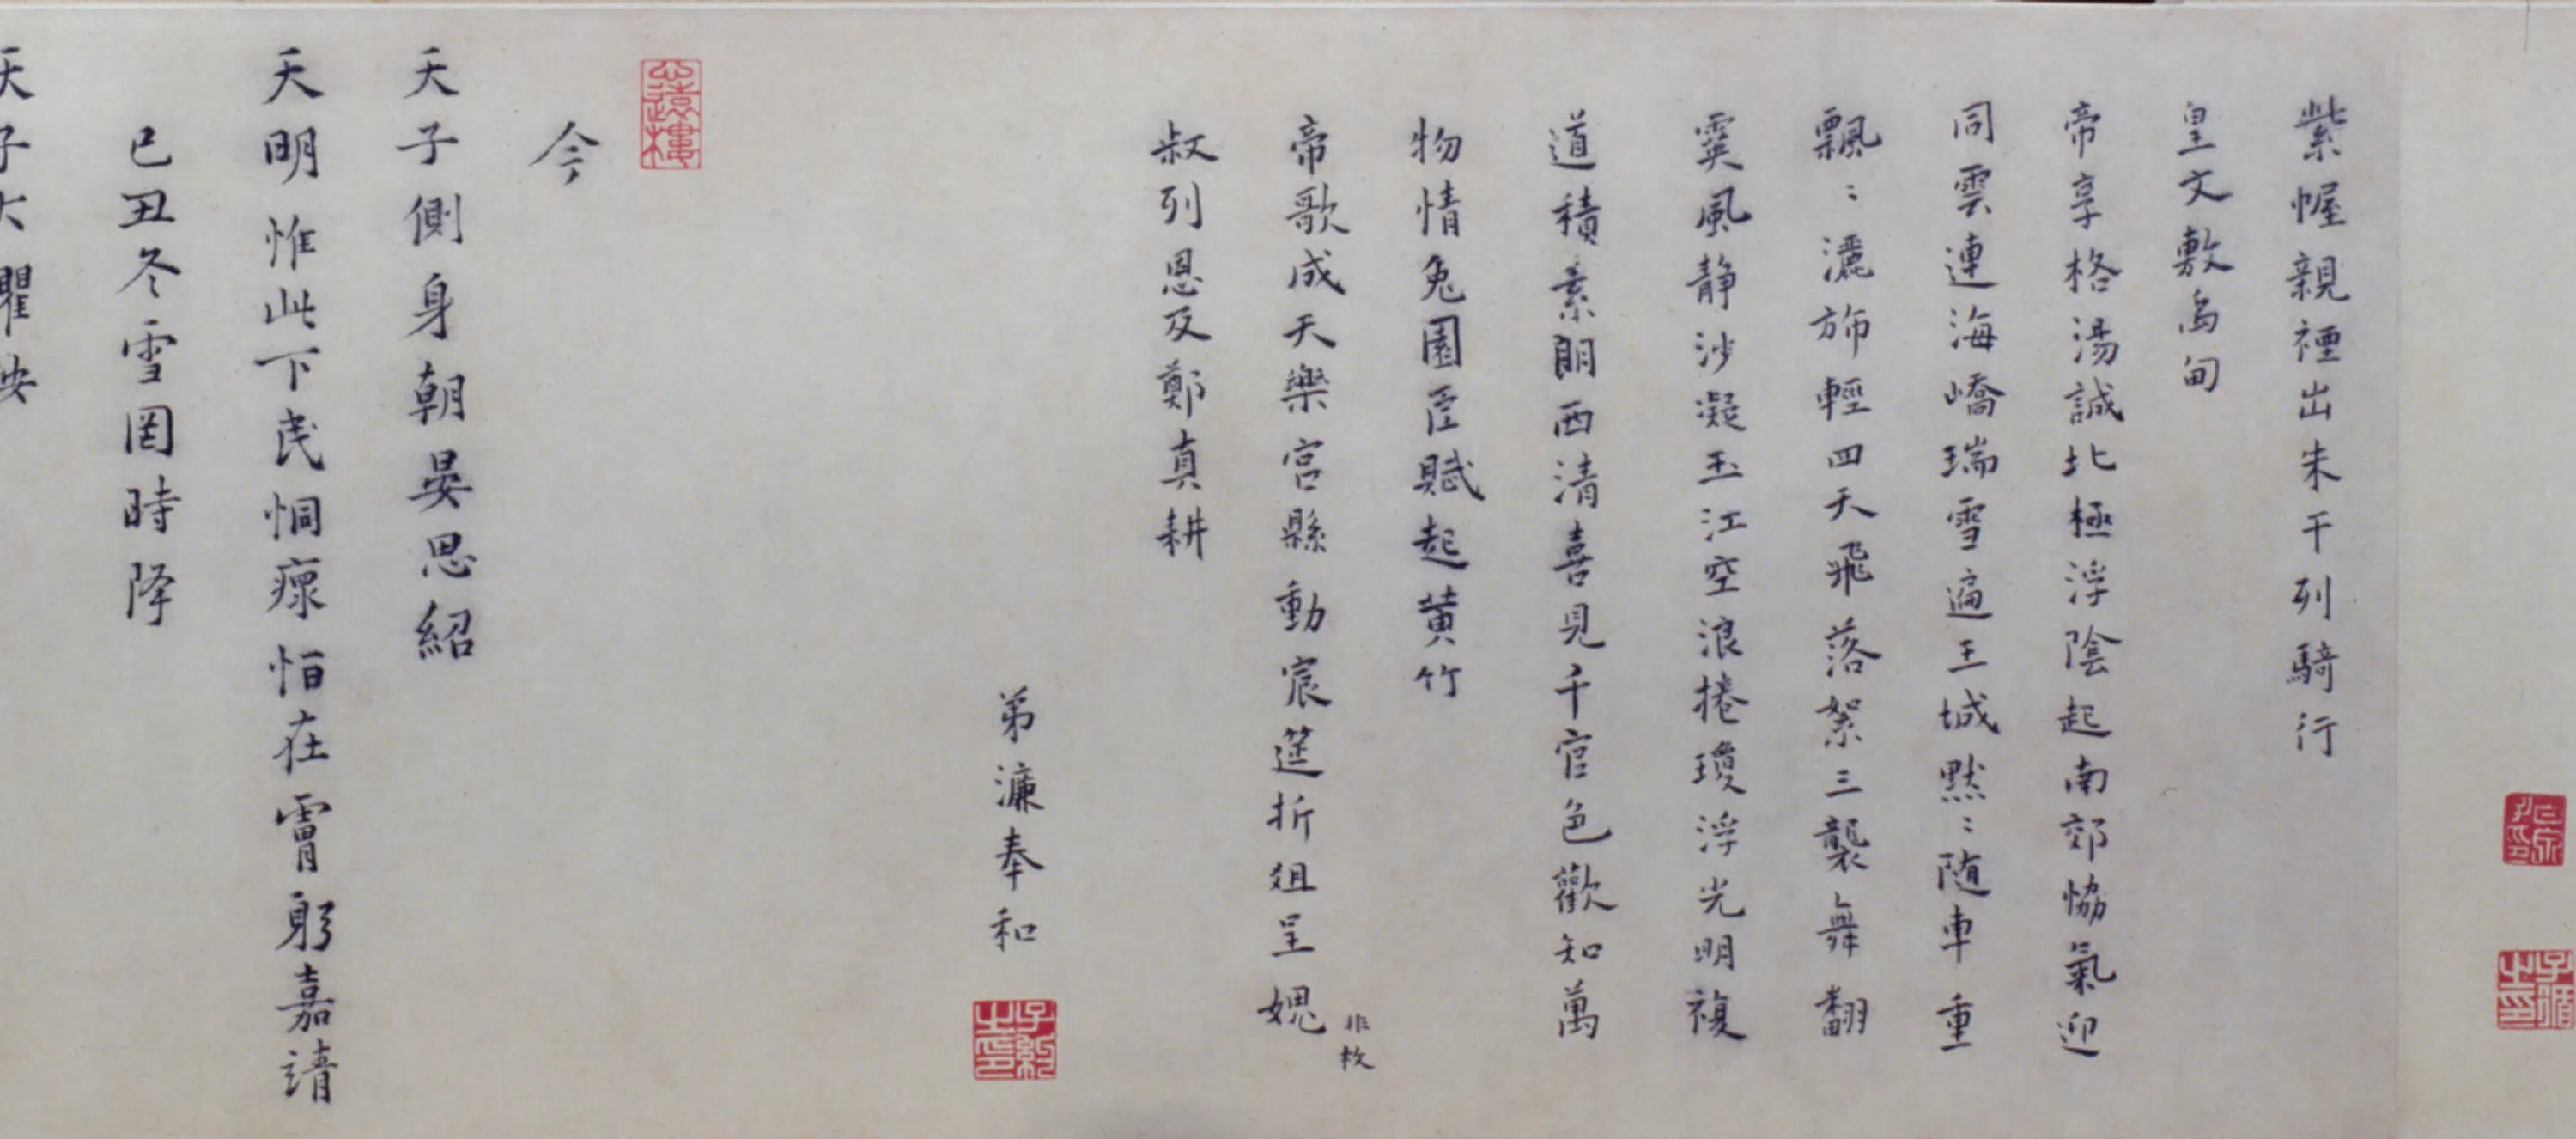 紫幄親禋出朱干列騎行
皇文敷禹甸
帝享格湯誠北極浮陰起南郊恊氣迎
同雲連海嶠瑞雪遍王城默〻随車重
飄〻灑斾輕四天飛落絮三襲舞翻
霙風静沙凝玉江空浪捲瓊浮光明複
道積素朗西清喜見千官色歡知萬
物情兔園臣賦起黄竹
帝歌成天樂宫縣動宸筵折俎呈媿
非枚
叔列恩及鄭真耕
弟濂奉和
子約之印
遠樓
今
天子側身朝晏思紹
天明惟此下民恫瘝怕在霄躬嘉請
已丑冬雪罔時降
天子大瞿按